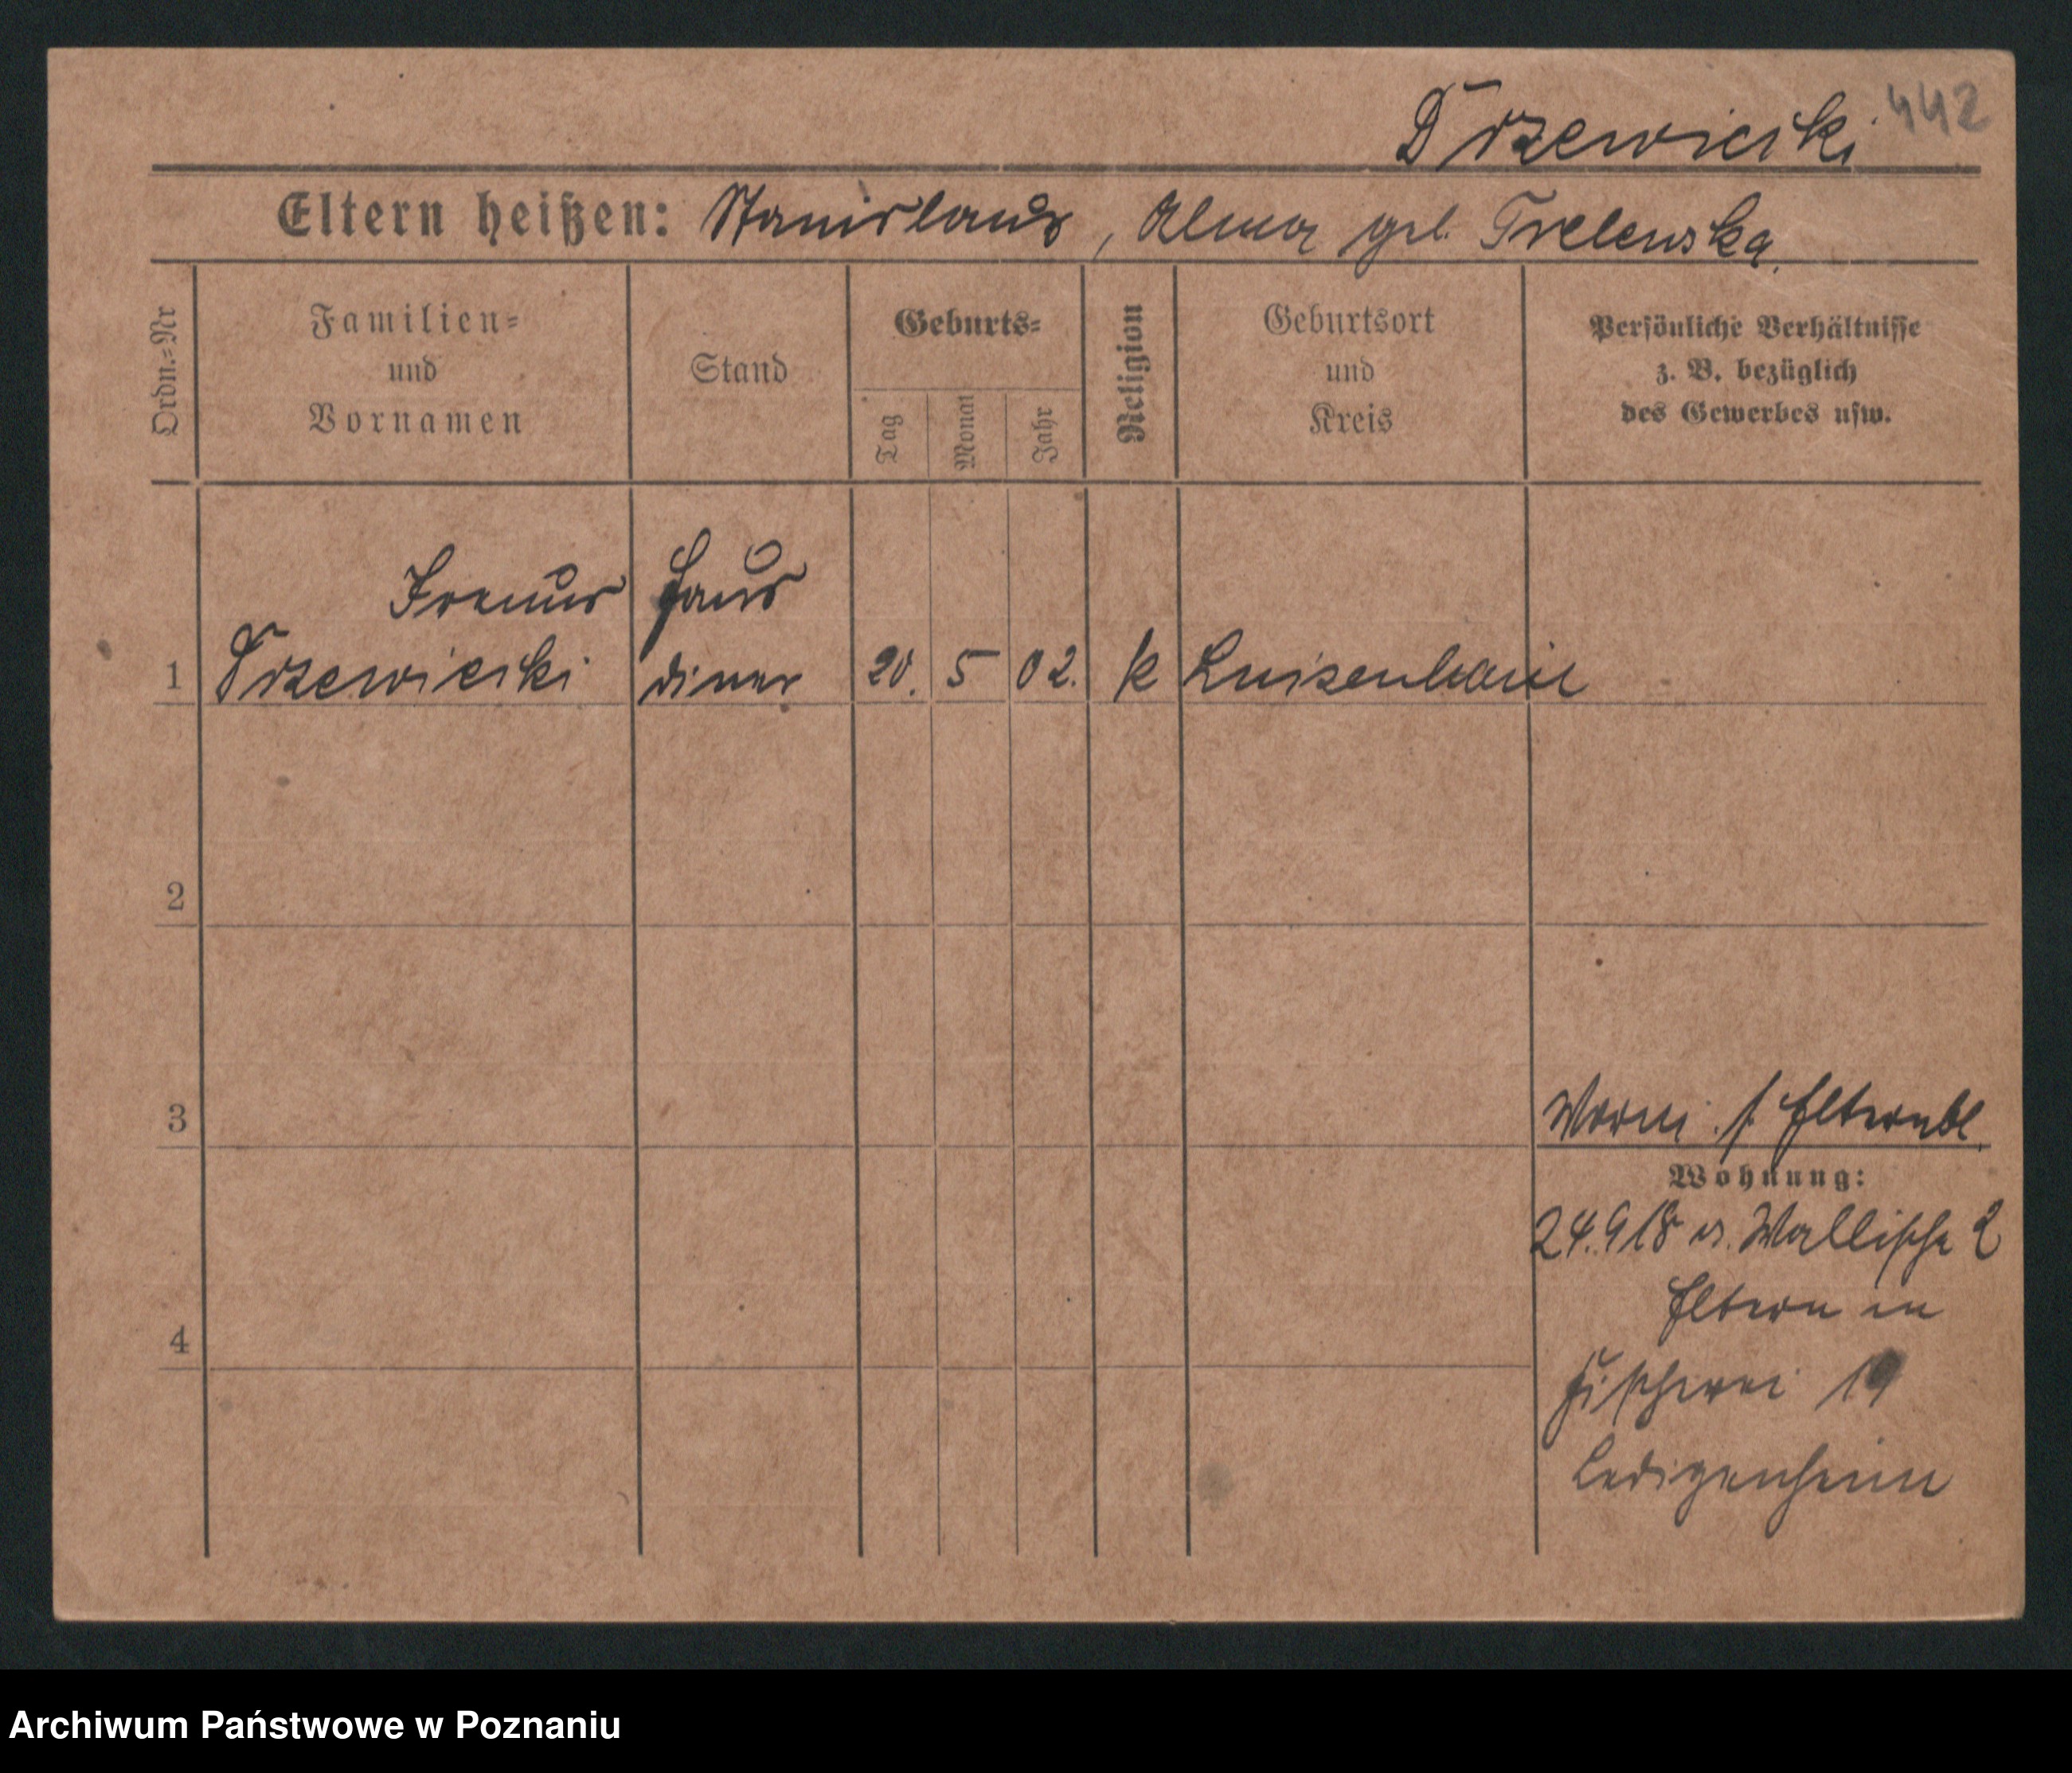 442
Drzewiecki
Eltern heißen: Stanislaus, Alma geb. Trelewska.
Ordn.=Nr
Familien=
und
Vornamen
Stand
Geburts=
Tag
Monat
Jahr
Religion
Geburtsort
und
Kreis
Persönliche Verhältnisse
z. B. bezüglich
des Gewerbes usw.
Irenäus Haus
1 Drzewiecki diener 20. 5 02. k Luisenhain
2
3
Vorm. s. Elternbl.
Wohnung:
24.9 18 v. Wallische 2
Eltern in
4
Fischerei 19
Ledigenheim
Archiwum Państwowe w Poznaniu